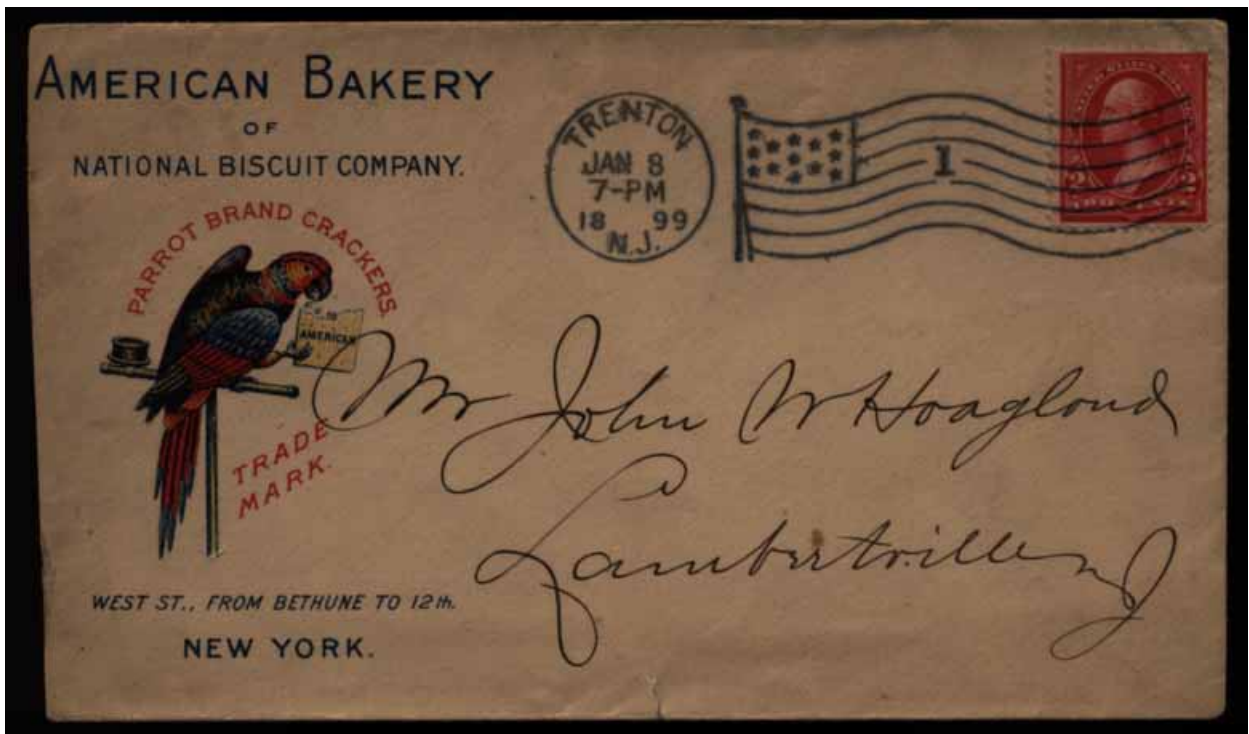 AMERICAN BAKERY
OF
NATIONAL BISCUIT COMPANY.
PARROT BRAND CRACKERS.
AMERICAN
TRADE
MARK.
WEST ST., FROM BETHUNE TO 12th.
NEW YORK.
TRENTON
JAN 8
7-PM
18 99
N.J.
1
2 2
TWO CENTS
Mr John W Hoagland
Lambertville NJ